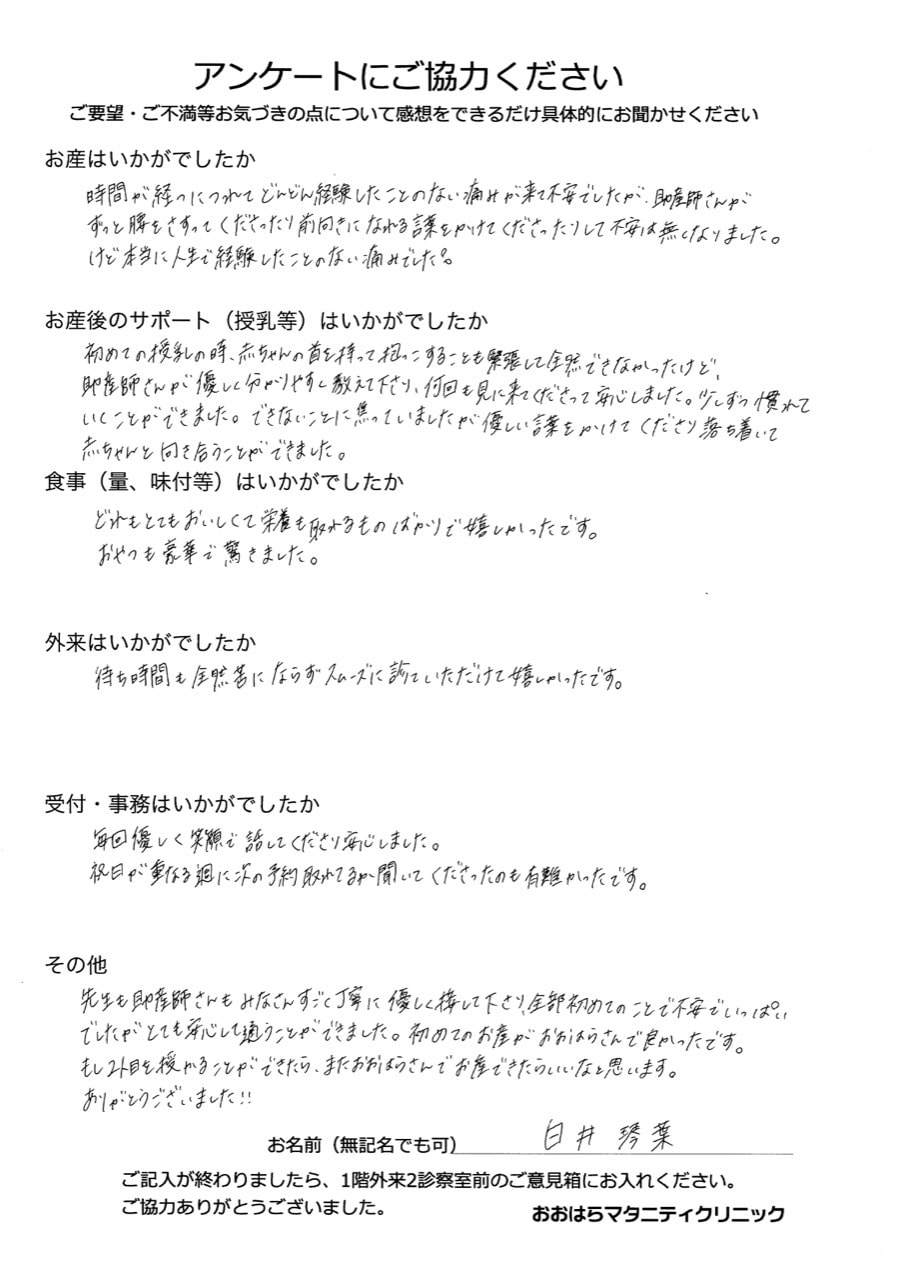 アンケートにご協力ください
ご要望・ご不満等お気づきの点について感想をできるだけ具体的にお聞かせください
お産はいかがでしたか
時間が経つにつれてどんどん経験したことのない痛みが来て不安でしたが、助産師さんが
ずっと腰をさすってくださったり前向きになれる言葉をかけてくださったりして不安は無くなりました。
けど本当に人生で経験したことのない痛みでした。
お産後のサポート（授乳等）はいかがでしたか
初めての授乳の時、赤ちゃんの首を持って抱っこすることも緊張して全然できなかったけど、
助産師さんが優しく分かりやすく教えて下さり、何回も見に来てくださって安心しました。少しずつ慣れて
いくことができました。できないことに焦っていましたが優しい言葉をかけてくださり落ち着いて
赤ちゃんと向き合うことができました。
食事（量、味付等）はいかがでしたか
どれもとてもおいしくて栄養も取れるものばかりで嬉しかったです。
おやつも豪華で驚きました。
外来はいかがでしたか
待ち時間も全然苦にならずスムーズに診ていただけて嬉しかったです。
受付・事務はいかがでしたか
毎回優しく笑顔で話してくださり安心しました。
祝日が重なる週に次の予約取れてるか聞いてくださったのも有難かったです。
その他
先生も助産師さんもみなさんすごく丁寧に優しく接して下さり、全部初めてのことで不安でいっぱい
でしたがとても安心して通うことができました。初めてのお産がおおはらさんで良かったです。
もし2人目を授かることができたら、またおおはらさんでお産できたらいいなと思います。
ありがとうございました!!
お名前（無記名でも可） 白井 琴葉
ご記入が終わりましたら、1階外来2診察室前のご意見箱にお入れください。
ご協力ありがとうございました。
おおはらマタニティクリニック